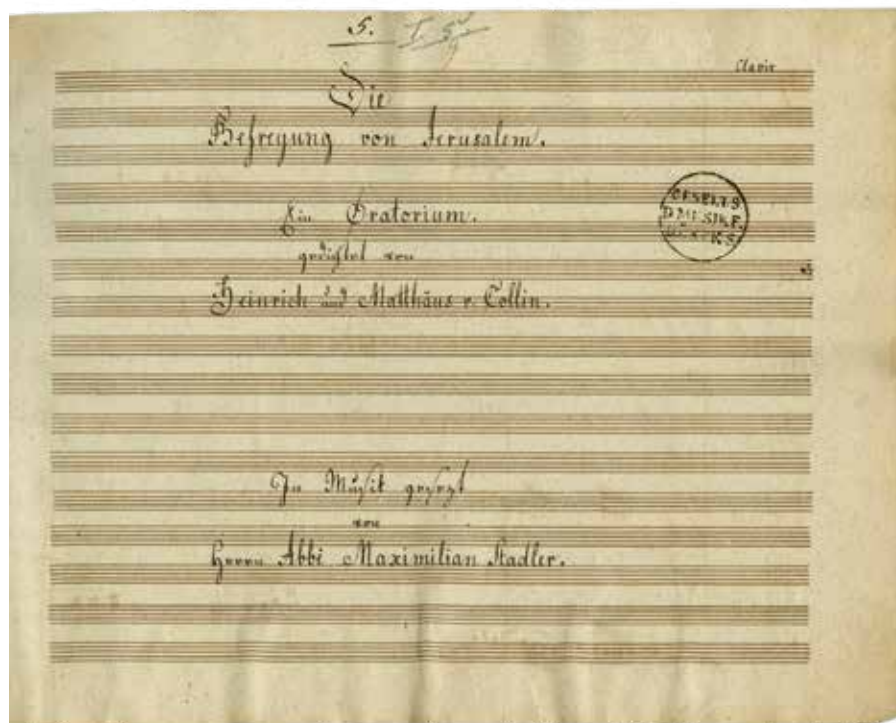 5.
Clavir
Die
Befreyung von Jerusalem.
Ein Oratorium.
gedichtet von
Heinrich und Matthäus v. Collin.
GESELLS
D.MUSIKF.
In Musik gesezt
von
Herrn Abbé Maximilian Stadler.